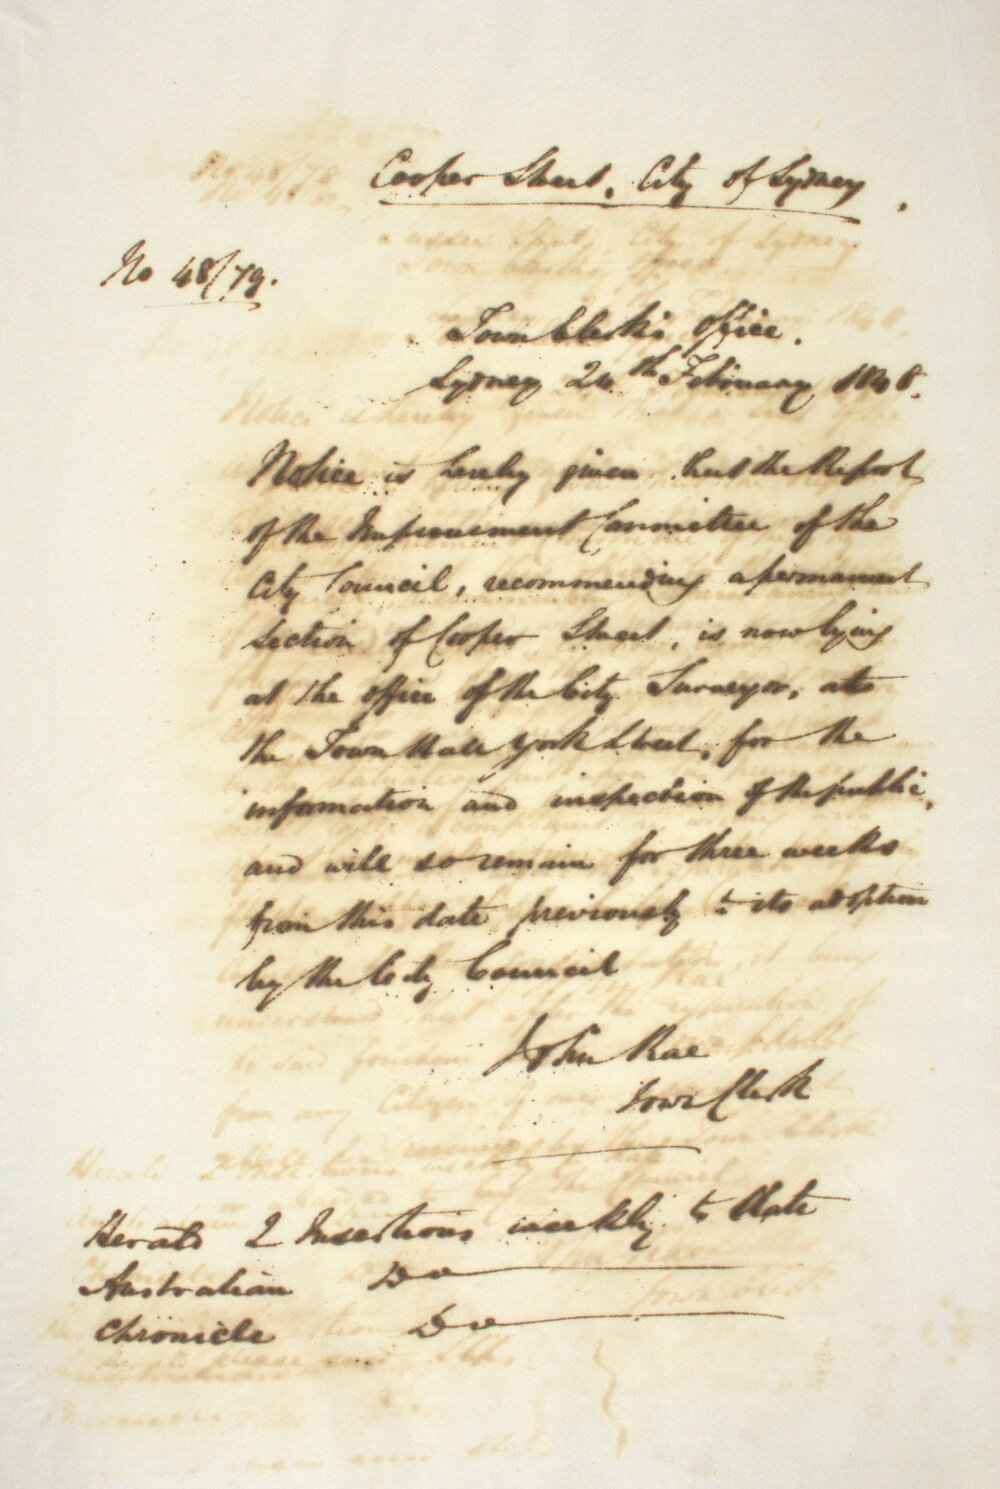 Cooper Street, City of Sydney.
No 48/79.
Town Clerk's Office.
Sydney 24th February 1848.
Notice is hereby given that the Report
of the Improvement Committee of the
City Council, recommending a permanent
section of Cooper Street, is now lying
at the office of the City Surveyor, at
the Town Hall York Street, for the
information and inspection of the public,
and will so remain for three weeks
from this date previously to its adoption
by the City Council
John Rae
Town Clerk
Herald 2 Insertions weekly to date
Australian Do
Chronicle Do